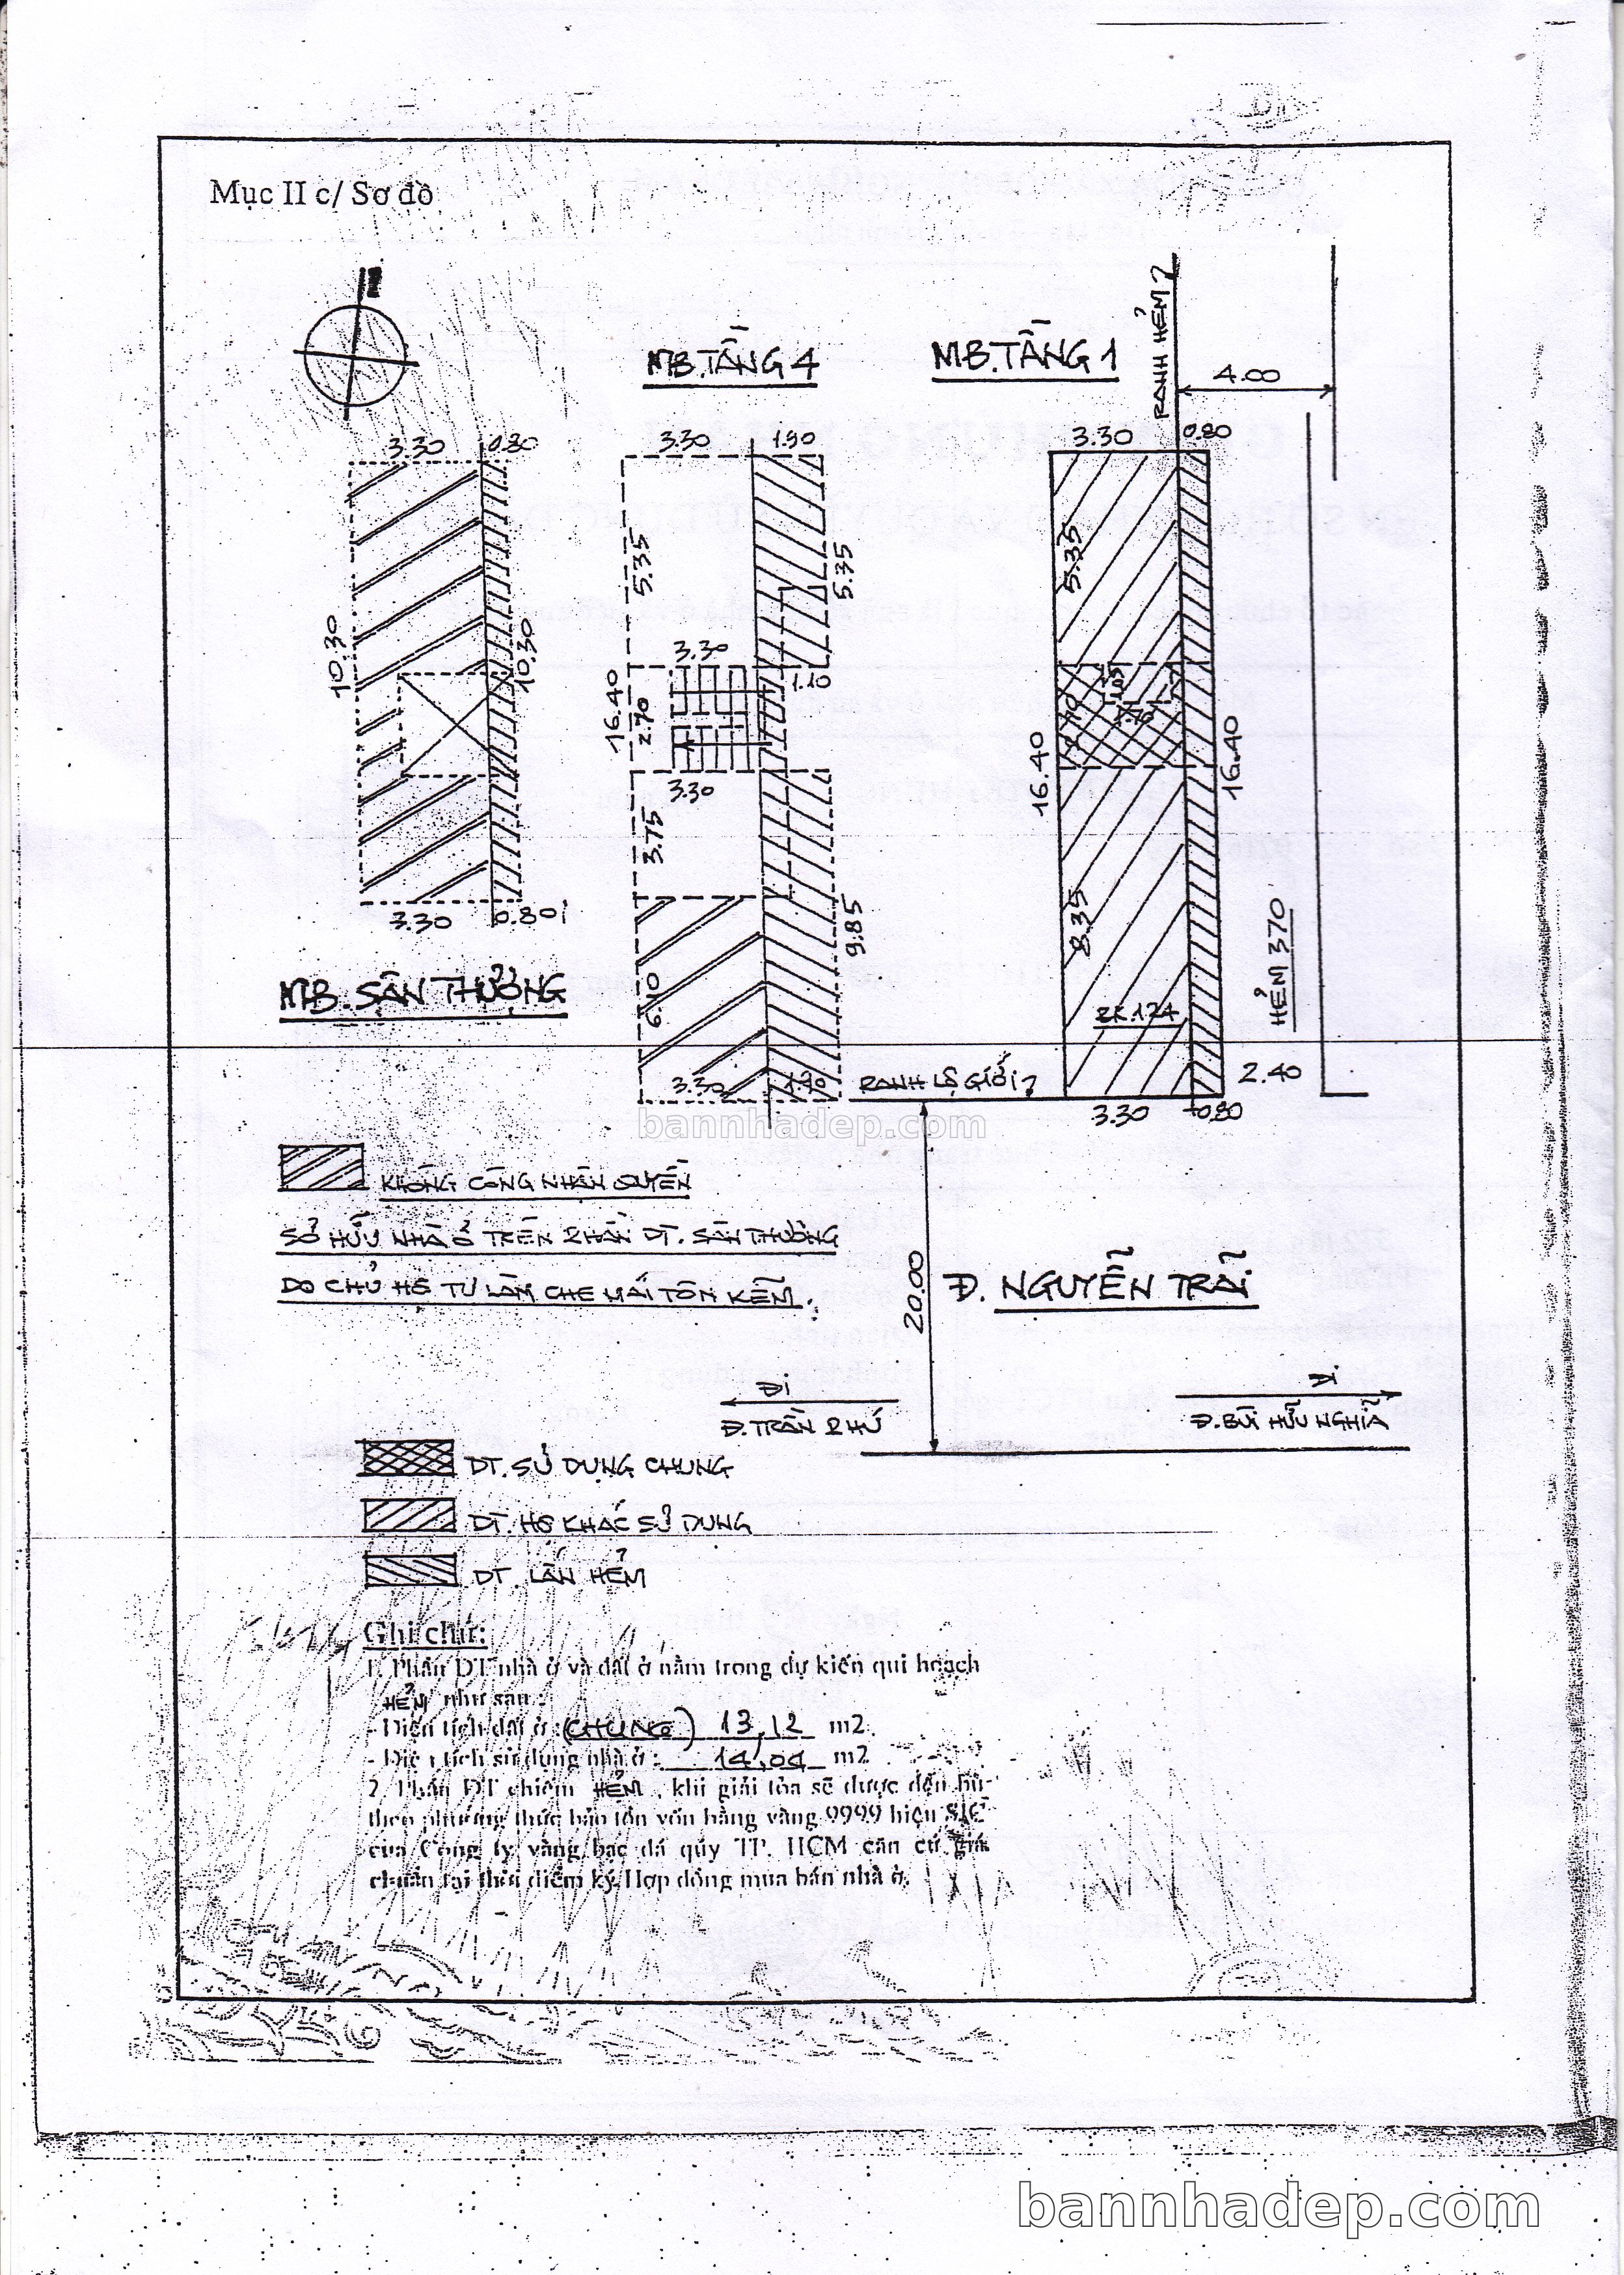 Mục II c/ Sơ đồ
RANH HẺM
MB.TẦNG 4
MB.TẦNG 1
4.00
3.30
0.80
3.30
1.90
3.30
0.80
5.35
5.35
5.35
10.30
10.30
3.30
1.10
16.40
2.70
3.30
3.75
16.40
16.40
3.30
0.80
8.35
9.85
6.10
HẺM 370
MB. SÂN THƯỢNG
2K.124
2.40
3.30
1.90
RANH LỘ GIỚI
3.30
0.80
bannhadep.com
KHÔNG CÔNG NHẬN QUYỀN
SỞ HỮU NHÀ Ở TRÊN PHẦN DT. SÂN THƯỢNG
DO CHỦ HỘ TỰ LÀM CHE MÁI TÔN KẼM.
20.00
Đ. NGUYỄN TRÃI
ĐI
Đ.TRẦN PHÚ
ĐI
Đ.BÙI HỮU NGHĨA
DT. SỬ DỤNG CHUNG
DT. HỘ KHÁC SỬ DỤNG
DT. LẤN HẺM
Ghi chú:
1. Phần DT nhà ở và đất ở nằm trong dự kiến qui hoạch
HẺM như sau :
- Diện tích đất ở : (CHUNG) 13,12 m2
- Diện tích sử dụng nhà ở : 14,04 m2
2. Phần DT chiếm HẺM, khi giải tỏa sẽ được đền bù
theo phương thức bảo tồn vốn bằng vàng 9999 hiệu SJC
của Công ty vàng bạc đá qúy TP. HCM căn cứ giá
chuẩn tại thời điểm ký Hợp đồng mua bán nhà ở.
bannhadep.com